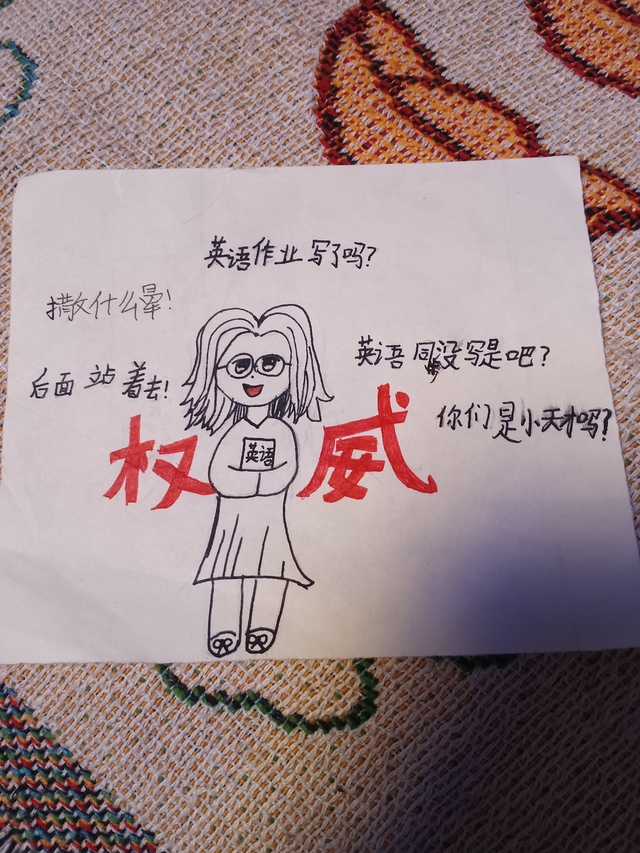 英语作业写了吗?
撒什么晕!
英语又没写是吧?
后面站着去!
你们是小天才吗?
权威
英语